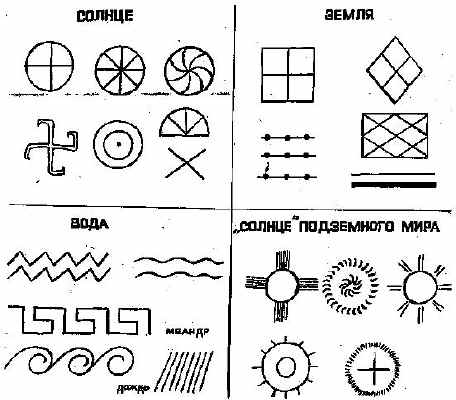 СОЛНЦЕ
ЗЕМЛЯ
ВОДА
меандр
дождь
„СОЛНЦЕ" ПОДЗЕМНОГО МИРА